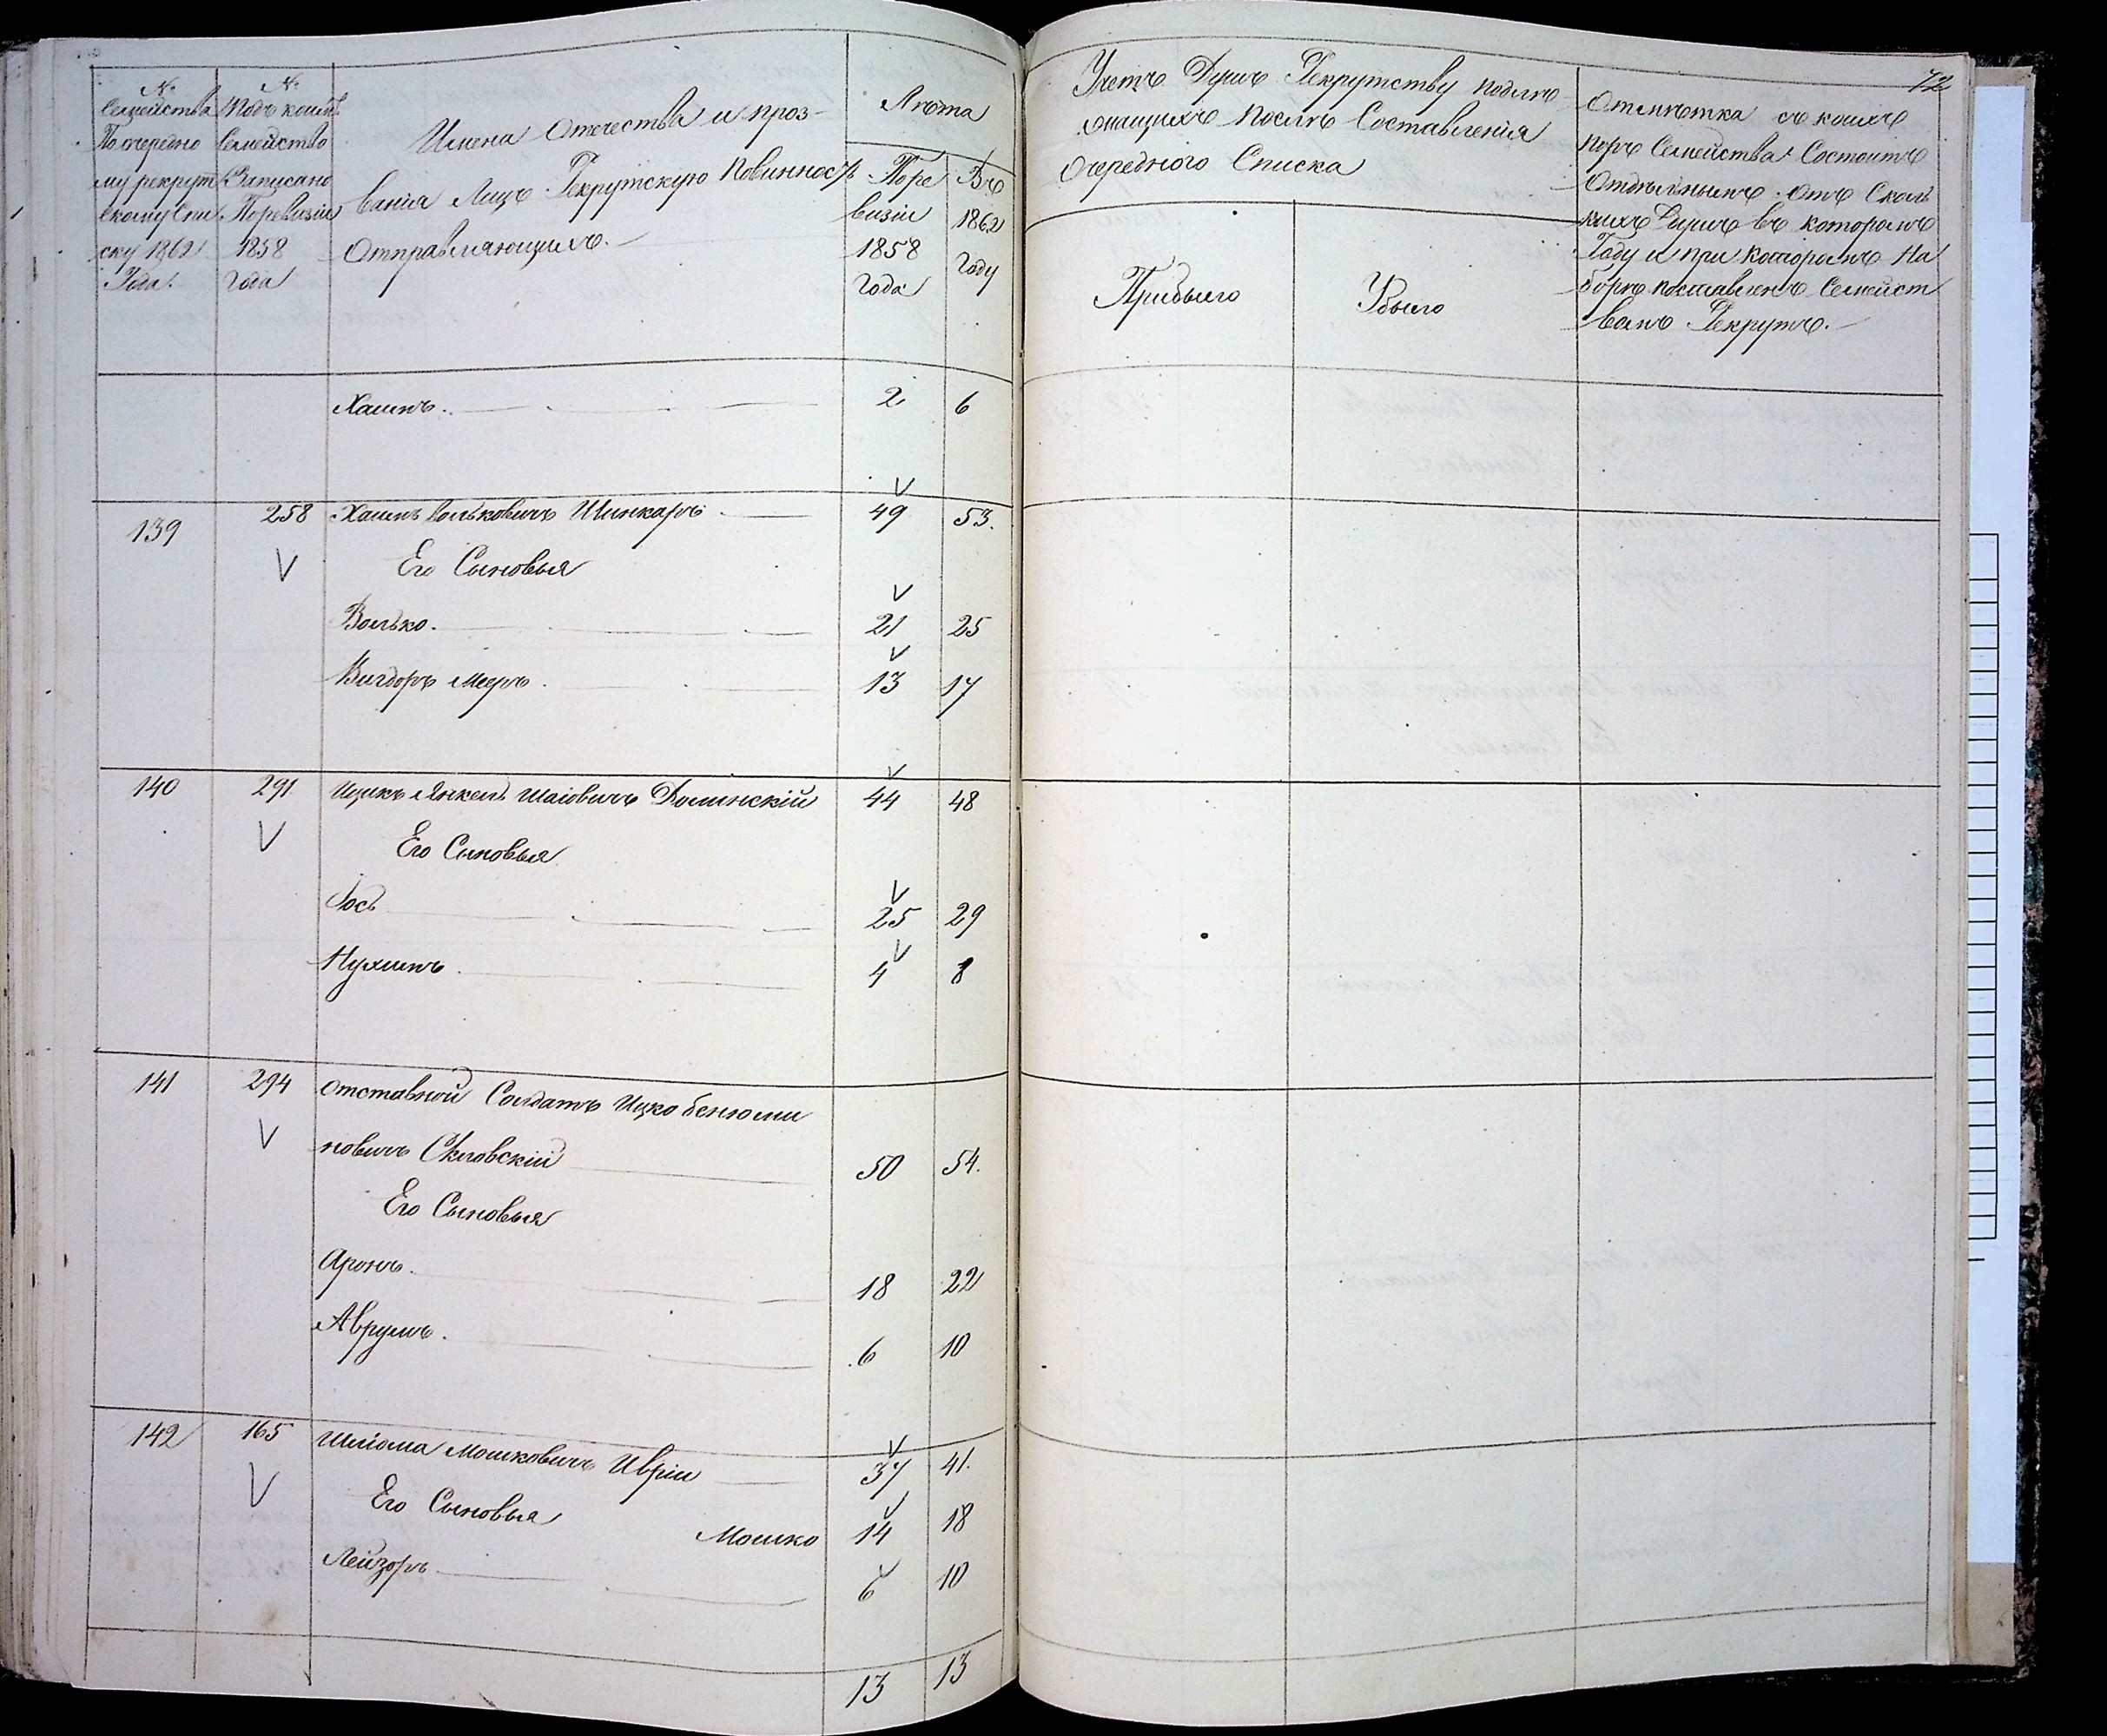 №
Семейства
По очередно
му рекрут
скому спи
ску 1862
Года.
№
Подъ коимъ
Семейство
Записано
По ревизіи
1858
года
Имена Отечества и проз-
ванія Лицъ Рекрутскую Повинность
Отправляющихъ.
Лѣта
По ре
визіи
1858
года
Въ
1862
Году
Учетъ Душъ Рекрутству подле
жащихъ послѣ Составленія
Очереднаго Списка
Прибыло
Убыло
72
Отмѣтка съ коихъ
поръ Семейства Состоитъ
Отдѣльнымъ. Отъ Сколь
кихъ Душъ въ которомъ
Году и при которомъ На
борѣ поставленъ Семейст
вомъ Рекрутъ.
Хаимъ. 2 6
139 258 Хаимъ Вольковичъ Шинкаръ 49 53.
V Его Сыновья
Волько. 21 25
Вигдоръ Мееръ. 13 17
140 291 Ицикъ Янкель Шаіовичъ Долинскій 44 48
V Его Сыновья
Іось 25 29
Нухимъ. 4 8
141 294 Отставной Солдатъ Ицко Бенюми
V новичъ Скловскій 50 54.
Его Сыновья
Аронъ. 18 22
Аврумъ. 6 10
142 165 Шліома Мошковичъ Иврій 37 41.
V Его Сыновья Мошко 14 18
Лейзоръ 6 10
13 13